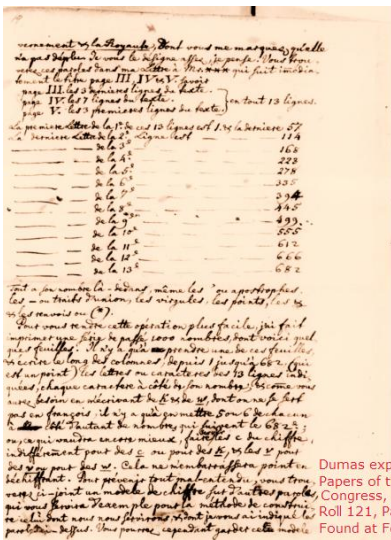 vernement & la Royauté, Dont vous me marquez qu'elle
n'a pas déplu. Je vous le désigne assez, je pense. Vous trou-
verez ces paroles dans ma Lettre à qui suit immédia-
tement le titre page III, IV & V. savoir
page III. les 3 dernieres lignes du texte.
page IV. les 7 lignes du texte. en tout 13 lignes.
page V. les 3 premieres lignes du texte.
La premiere Lettre de la 1e. de ces 13 lignes est 1. & la derniere 57
La derniere Lettre de la 2e. Ligne est 114
de la 3e 168
de la 4e 223
de la 5e 278
de la 6e 335
de la 7e 394
de la 8e 445
de la 9e 499
de la 10e 555
de la 11e 612
de la 12e 666
de la 13e 682
Tout a son nombre là-dedans, même les ' ou apostrophes.
les - ou traits d'union, les virgules. les points, les &
& les renvois ou (*).
Pour vous rendre cette opération plus facile, j'ai fait
imprimer une série de passé 1000 nombres, dont voici quel-
ques feuilles. Il n'y a qu'à prendre une de ces feuilles,
& écrire le long des colomnes, depuis 1 jusqu'à 682 (qui
est un point) les lettres ou caracteres des 13 lignes indi-
quées, chaque caractere à côté de son nombre; & come vous
aurez besoin en m'écrivant de k & de w, dont on ne se sert
pas en françois, il n'y a qu'à en mettre 5 ou 6 de chacun
à côté d'autant de nombres qui suivent le 682e;
ou, ce qui vaudra encore mieux, faites les c du chiffre,
indifféremment pour des c ou pour des k, & les v pour
des v ou pour des w. Cela ne m'embarrassera point en
déchiffrant. Pour prévenir tout mal-entendu, vous trou-
verez ci-joint un modele de chiffre sur d'autres paroles,
qui vous servira d'exemple pour la méthode de construi-
re celui dont nous nous servirons, & dont je vous ai indiqué les
paroles ci-dessus. Vous pourrez cependant garder cette modele
Dumas exp
Papers of t
Congress,
Roll 121, Pa
Found at F